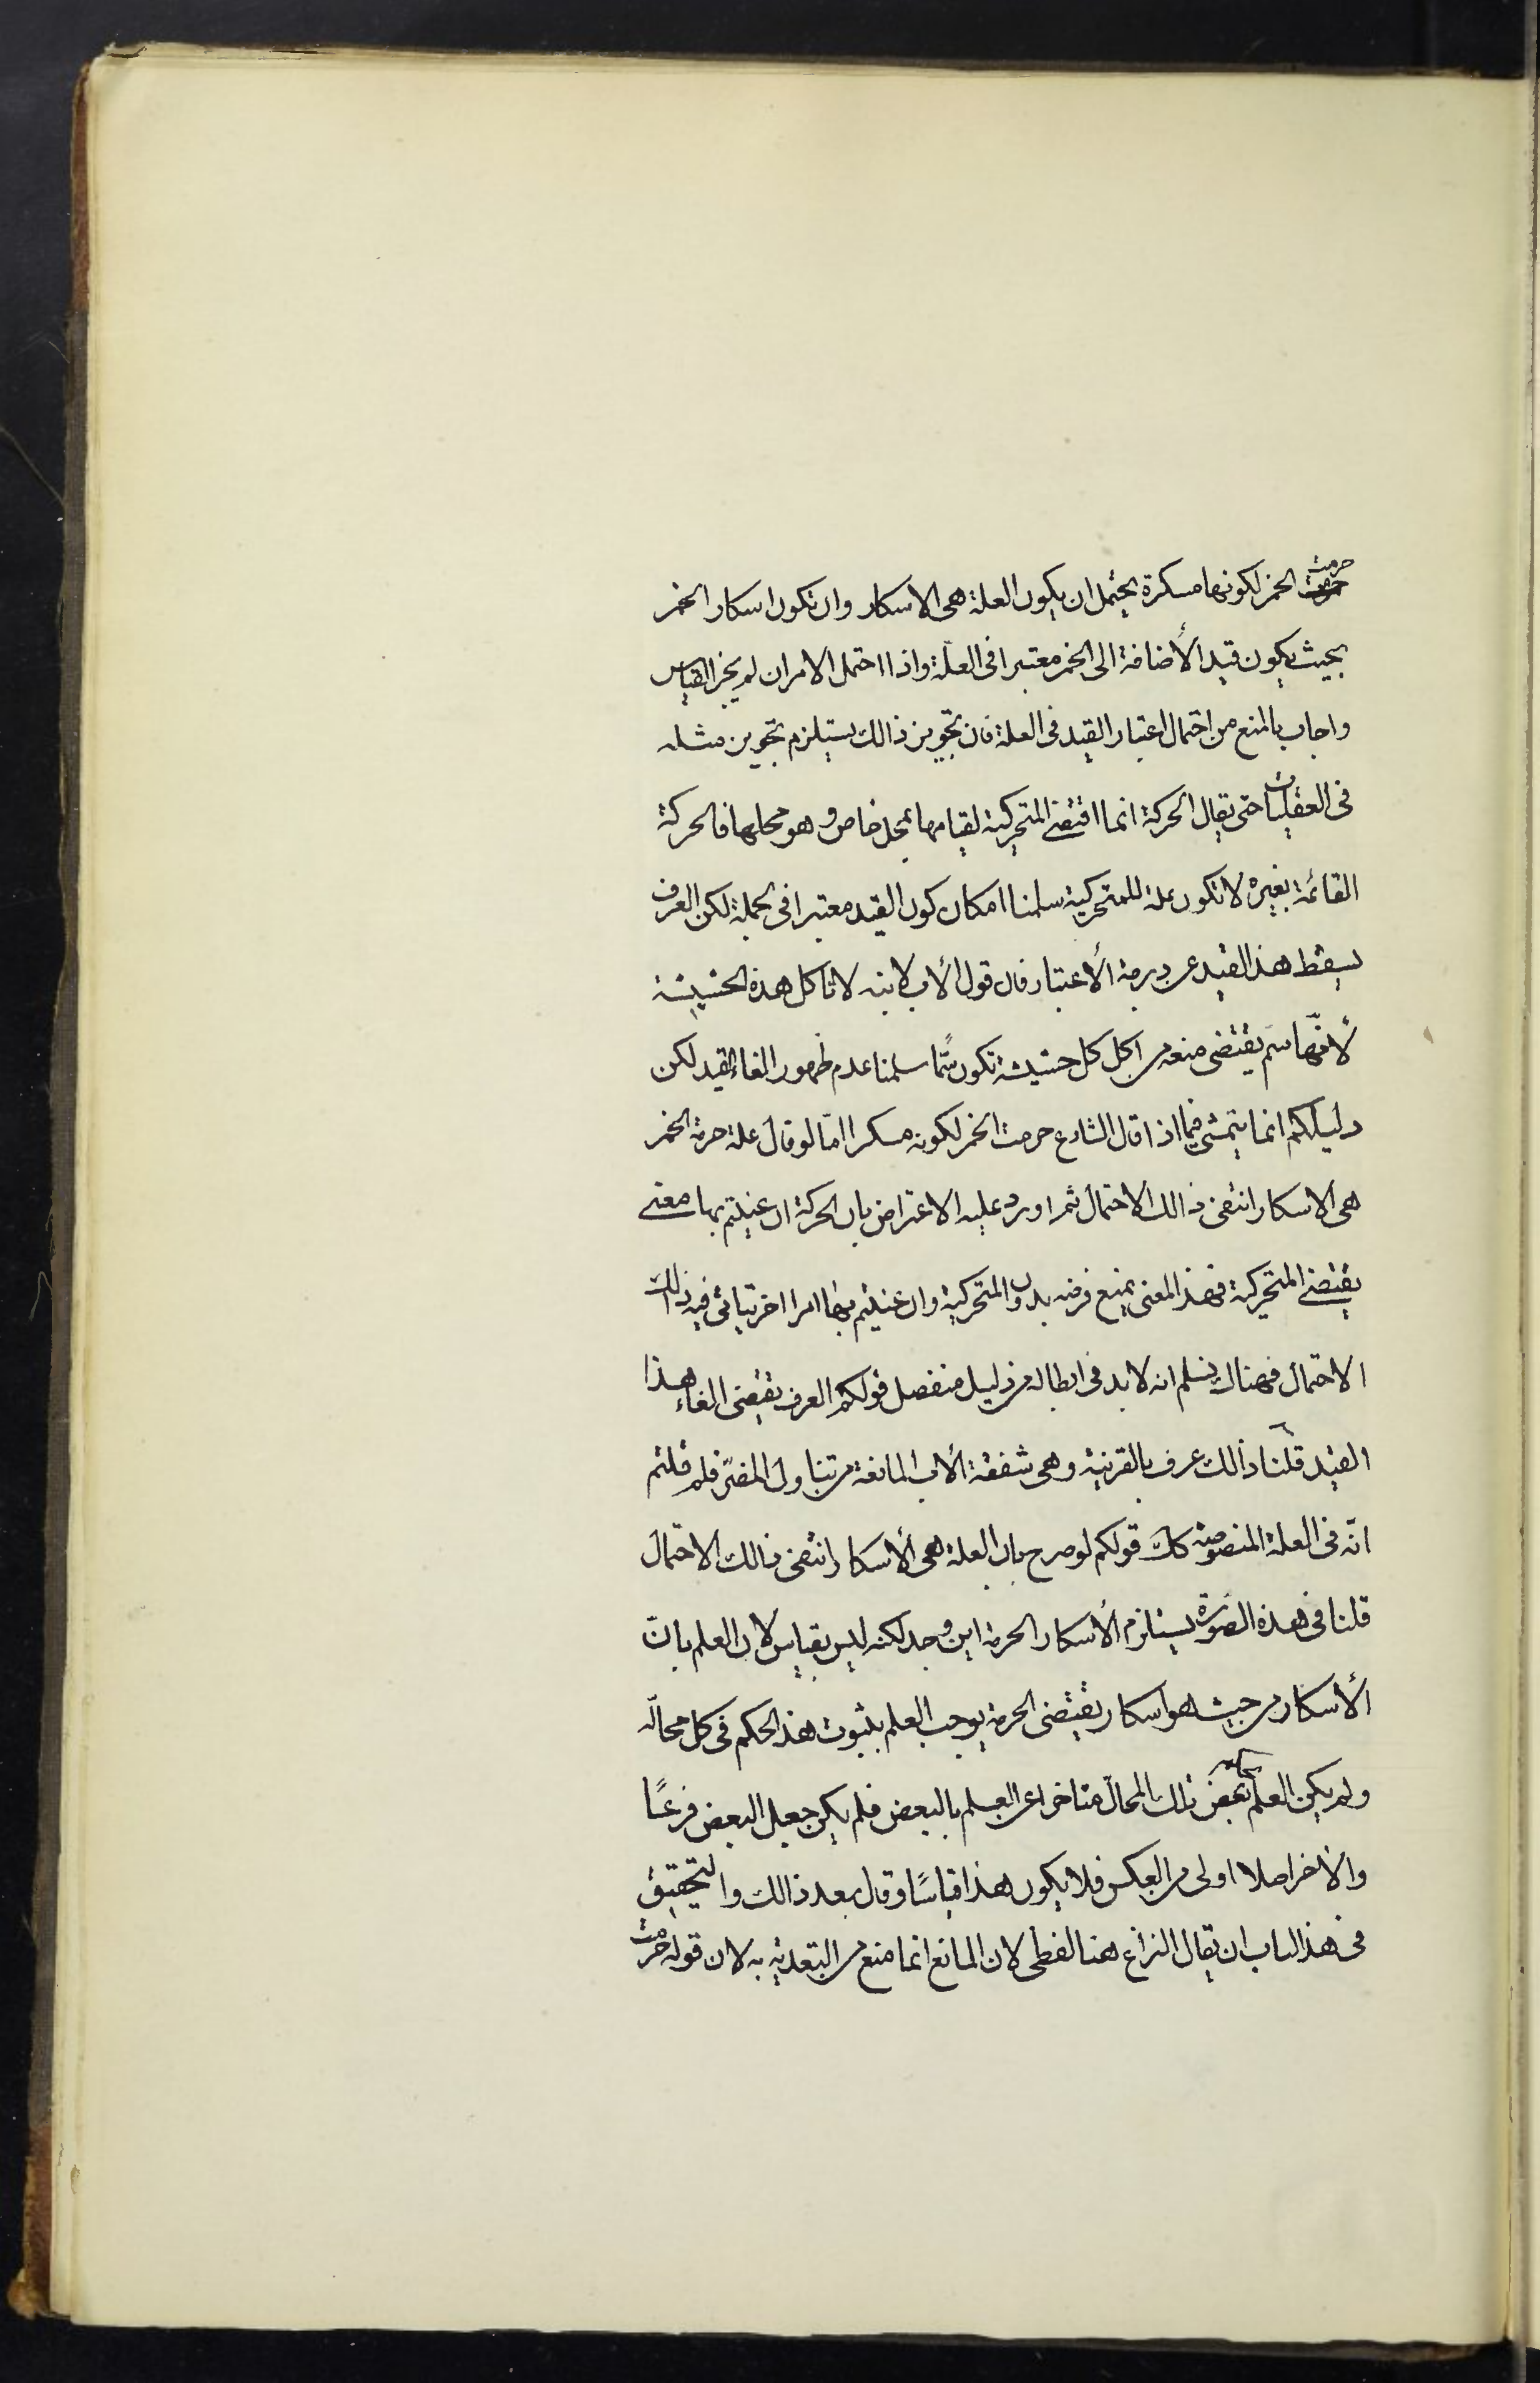 حرمت الخمر لكونها مسكرة يحتمل ان يكون العلة هى الاسكار وان تكون اسكار الخمر
بحيث يكون قيد الأضافة الى الخمر معتبرا فى العلّة واذا احتمل الامران لم يجز القياس
واجاب بالمنع من احتمال اعتبار القيد فى العلة فان تجويز ذالك يستلزم تجويز مثله
فى العقليات حتى يقال الحركة انما اقتضى المتحركية لقيامها بمحل خاص وهو محلها فالحركة
القائمة بغيره لا تكون علة للمتحركية سلمنا امكان كون القيد معتبرا فى الجملة لكن العرف
يسقط هذا القيد عن درجة الأعتبار فان قول الأب لابنه لا تاكل هذه الحشيشة
لأنّها سمّ يقتضى منعه من اكل كل حشيشة تكون سمًّا سلمنا عدم ظهور الغاء القيد لكن
دليلكم انما يتمشى فيما اذا قال الشارع حرمت الخمر لكونه مسكرا امّا لو قال علة حرمة الخمر
هى الاسكار انتفى ذالك الاحتمال ثم اورد عليه الاعتراض بان الحركة ان عنيتم بها معنى
يقتضى المتحركية فهذا المعنى يمنع فرضه بدون المتحركية وان عنيتم بها امرا اخر يتاتى فيه ذلك
الاحتمال فهناك نسلم انه لا بد فى ابطاله من دليل منفصل قولكم العرف يقتضى الغاء هذا
القيد قلنا ذالك عرف بالقرينة وهى شفقة الأب المانعة من تناول المضرّ فلم قلتم
انّه فى العلة المنصوصة كك قولكم لو صرح بان العلة هى الأسكار انتفى ذالك الاحتمال
قلنا فى هذه الصورة يستلزم الأسكار الحرمة اين وجد لكنه ليس بقياس لان العلم بانّ
الأسكار من حيث هو اسكار يقتضى الحرمة يوجب العلم بثبوت هذا الحكم فى كل محالّه
ولم يكن العلم ببعض تلك المحالّ متاخرا عن العلم بالبعض فلم يكن جعل البعض فرعًا
والاخر اصلا اولى من العكس فلا يكون هذا قياسًا وقال بعد ذالك والتحقيق
فى هذا الباب ان يقال النزاع هنا لفظى لان المانع انما منع من التعدية به لان قوله حرمت